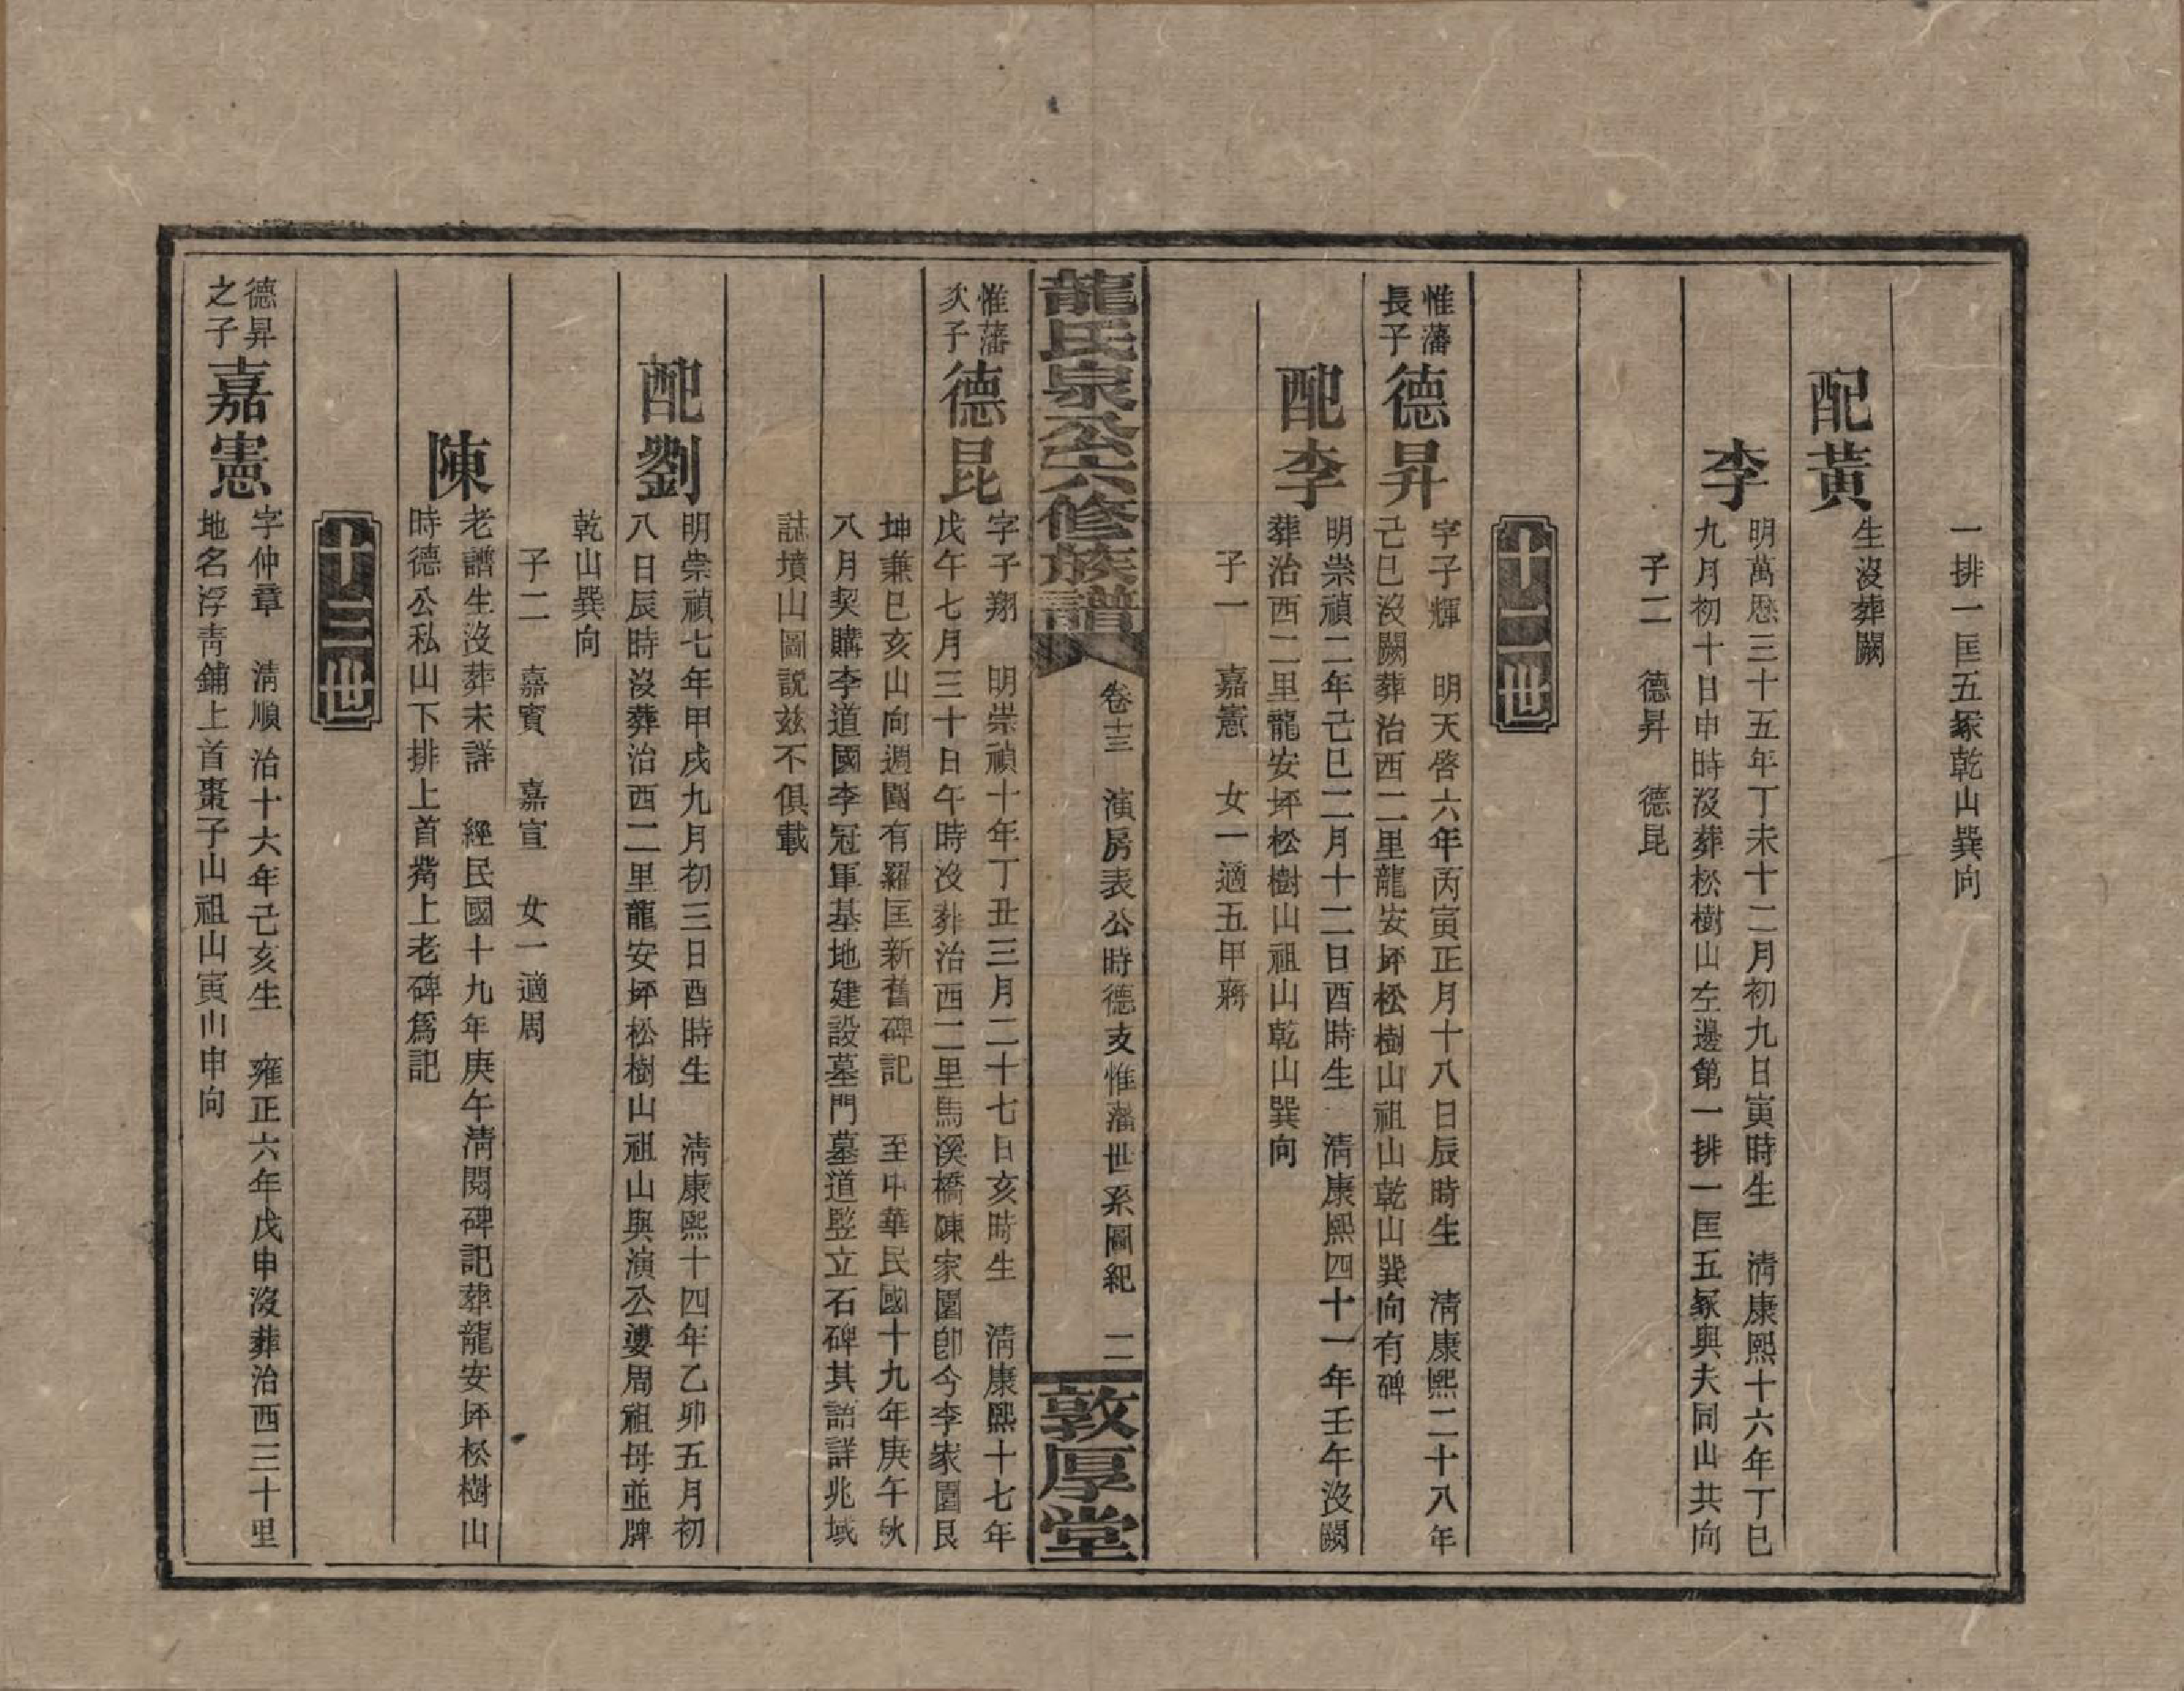 一排一匡五冢乾山巽向
配黃
生沒葬闕
李
明萬厯三十五年丁未十二月初九日寅時生　清康熙十六年丁巳
九月初十日申時沒葬松樹山左邊第一排一匡五冢與夫同山共向
子二　德昇　德昆
十二世
惟藩
長子
德昇
字子輝　明天啓六年丙寅正月十八日辰時生　清康熙二十八年
己巳沒闕葬治西二里龍安坪松樹山祖山乾山巽向有碑
配李
明崇禎二年己巳二月十二日酉時生　清康熙四十一年壬午沒闕
葬治西二里龍安坪松樹山祖山乾山巽向
子一　嘉憲　女一適五甲蔣
龍氏泉公六修族譜
卷十三　演房表公時德支惟藩世系圖紀　二
敦厚堂
惟藩
次子
德昆
字子翔　明崇禎十年丁丑三月二十七日亥時生　清康熙十七年
戊午七月三十日午時沒葬治西二里馬溪橋陳家園卽今李家園艮
坤兼巳亥山向週圍有羅匡新舊碑記　至中華民國十九年庚午秋
八月契購李道國李冠軍基地建設墓門墓道竪立石碑其詣詳兆域
誌墳山圖説玆不俱載
配劉
明崇禎七年甲戌九月初三日酉時生　清康熙十四年乙卯五月初
八日辰時沒葬治西二里龍安坪松樹山祖山與演公婆周祖母並牌
乾山巽向
子二　嘉賓　嘉宣　女一適周
陳
老譜生沒葬未詳　經民國十九年庚午清閱碑記葬龍安坪松樹山
時德公私山下排上首嵴上老碑爲記
十三世
德昇
之子
嘉憲
字仲章　清順治十六年己亥生　雍正六年戊申沒葬治西三十里
地名浮靑鋪上首棗子山祖山寅山申向